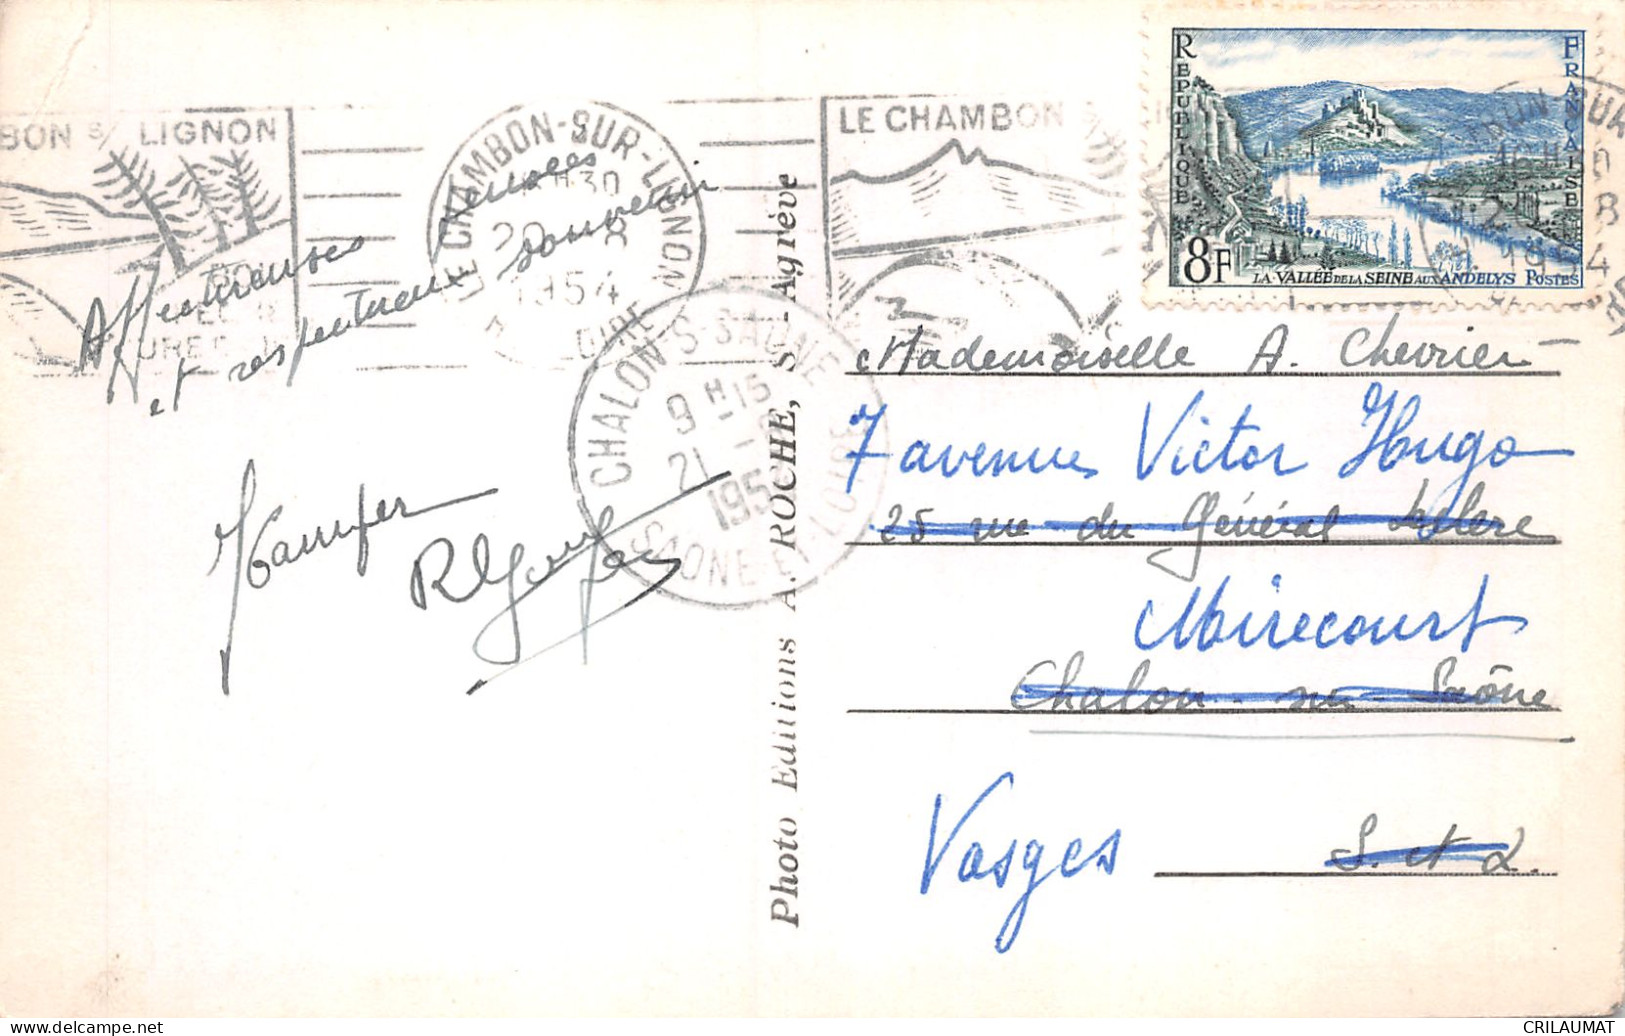 BON S/ LIGNON
LE CHAMBON-SUR-LIGNON
H30
20 - 8
1954
LOIRE
LE CHAMBON S/
Affectueuses pensées
et respectueux souvenir
CHALON-S-SAONE
9 H 15
21 - 8
195
SAONE-ET-LOIRE
Photo Editions A. ROCHE, St-Agrève
REPUBLIQUE FRANÇAISE
8F
LA VALLÉE DE LA SEINE AUX ANDELYS POSTES
Mademoiselle A. Chevrier
7 avenue Victor Hugo
25 rue du Général Leclerc
Mirecourt
Chalon sur Saône
Vosges
S. et L.
CRILAUMAT